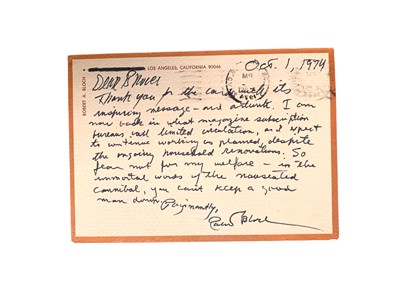 LOS ANGELES, CALIFORNIA 90046
Oct. 1, 1974
ROBERT A. BLOCH
Dear
Thank you for the card with its
inspiring message – and artwork. I am
now back in what magazine subscription
bureaus call limited circulation, and expect
to continue working as planned, despite
the ongoing household renovations. So
fear not for my welfare – in the
immortal words of the nauseated
cannibal, you can't keep a good
man down.
Robert Bloch